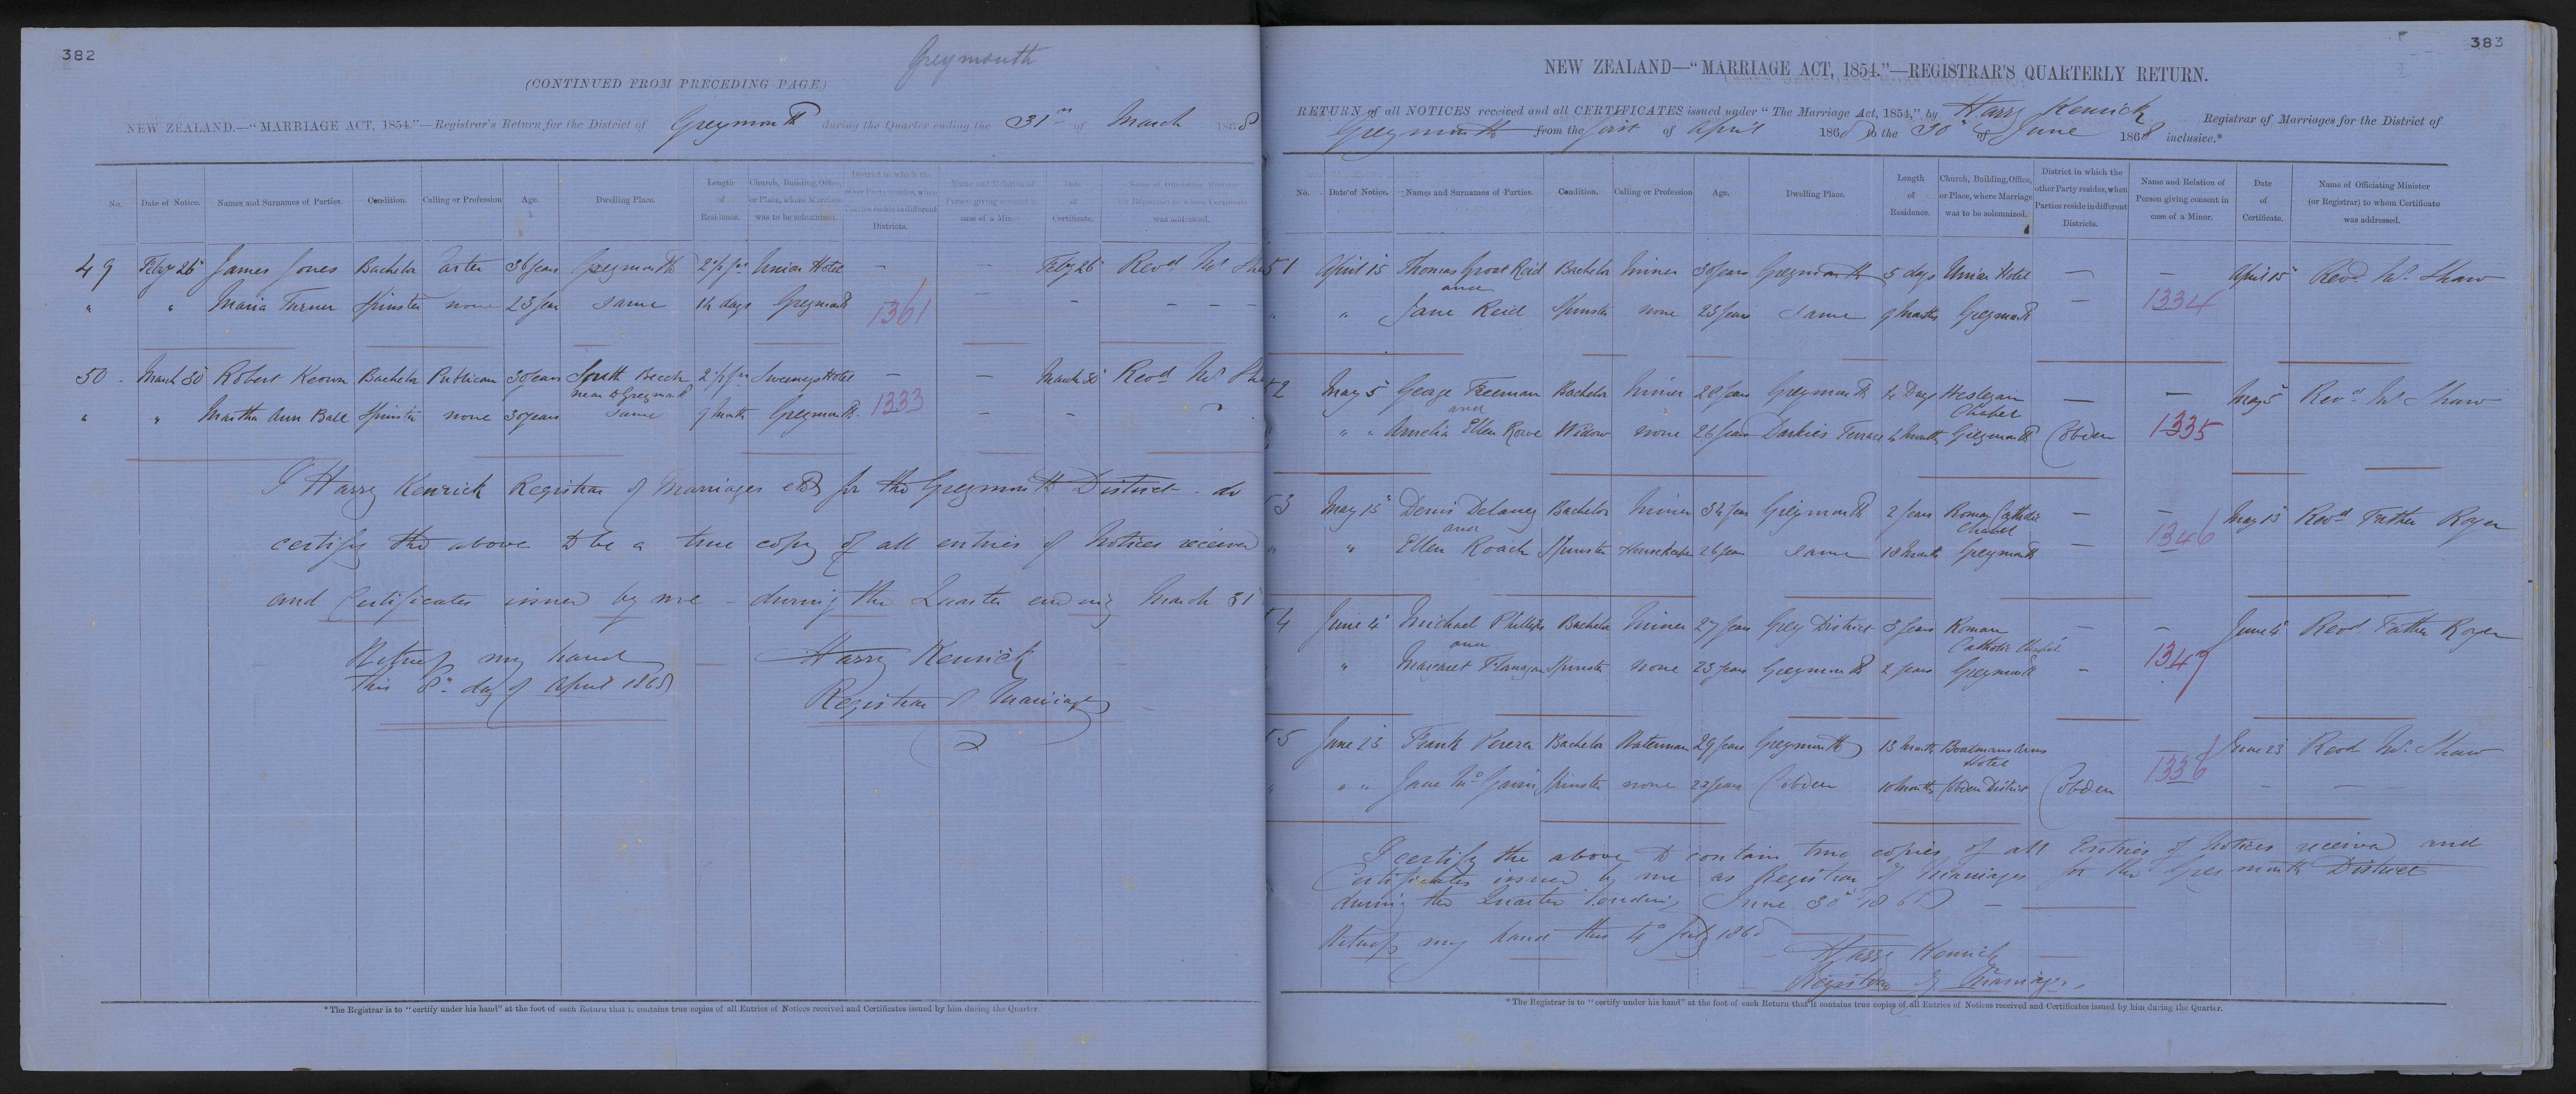 382
Greymouth
(CONTINUED FROM PRECEDING PAGE)
NEW ZEALAND.—"MARRIAGE ACT, 1854."—Registrar's Return for the District of Greymouth during the Quarter ending the 31st of March 1868
No. Date of Notice. Names and Surnames of Parties. Condition. Calling or Profession Age. Dwelling Place. Length of Residence. Church, Building, Office, or Place, where Marriage was to be solemnized. District in which the other Party resides, when Parties reside in different Districts. Name and Relation of Person giving consent in case of a Minor. Date of Certificate. Name of Officiating Minister (or Registrar) to whom Certificate was addressed.
49 Feby 26 James Jones Bachelor Carter 36 years Greymouth 2½ yrs Union Hotel — — Feby 26 Revd Wm
" " Maria Turner Spinster none 23 years same 14 days Greymouth 1361 — — — — —
50 March 30 Robert Keown Bachelor Publican 30 years South Beach near to Greymouth 2½ yrs Sweeneys Hotel — — March 30 Revd Wm
" " Martha Ann Ball Spinster none 30 years same 9 month Greymouth 1333 — —
I Harry Kenrick Registrar of Marriages etc for the Greymouth District do
certify the above to be a true copy of all entries of Notices received
and Certificates issued by me during the Quarter ending March 31
Witness my hand
this 8th day of April 1868
Harry Kenrick
Registrar of Marriages
*The Registrar is to "certify under his hand" at the foot of each Return that it contains true copies of all Entries of Notices received and Certificates issued by him during the Quarter.
383
NEW ZEALAND—"MARRIAGE ACT, 1854."—REGISTRAR'S QUARTERLY RETURN.
RETURN of all NOTICES received and all CERTIFICATES issued under "The Marriage Act, 1854," by Harry Kenrick Registrar of Marriages for the District of
Greymouth from the first of April 1868 to the 30th of June 1868 inclusive.*
No. Date of Notice. Names and Surnames of Parties. Condition. Calling or Profession Age. Dwelling Place. Length of Residence. Church, Building, Office, or Place, where Marriage was to be solemnized. District in which the other Party resides, when Parties reside in different Districts. Name and Relation of Person giving consent in case of a Minor. Date of Certificate. Name of Officiating Minister (or Registrar) to whom Certificate was addressed.
51 April 15 Thomas Groat Reid Bachelor Miner 30 years Greymouth 5 days Union Hotel — — April 15 Revd Wm Shaw
and
" " Jane Reid Spinster none 25 years same 9 months Greymouth — 1334
52 May 5 George Freeman Bachelor Miner 28 years Greymouth 4 Days Wesleyan Chapel — — May 5 Revd Wm Shaw
and
" " Amelia Ellen Rowe Widow none 26 years Darkies Terrace 4 months Greymouth Cobden 1335
53 May 15 Denis Delaney Bachelor Miner 34 years Greymouth 2 years Roman Catholic Chapel — — May 15 Revd Father Royer
and
" " Ellen Roach Spinster Housekeeper 26 years same 18 months Greymouth — 1346
54 June 4 Michael Phillips Bachelor Miner 27 years Grey District 3 years Roman Catholic Chapel — — June 4 Revd Father Royer
and
" " Margaret Flanagan Spinster none 23 years Greymouth 2 years Greymouth — 1347
55 June 23 Frank Perera Bachelor Waterman 29 years Greymouth 13 months Boatmans Arms Hotel — June 23 Revd Wm Shaw
" " Jane Spinster none 22 years Cobden 10 months Cobden District Cobden 1336 — —
I certify the above to contain true copies of all Entries of Notices received and
Certificates issued by me as Registrar of Marriages for the Greymouth District
during the Quarter ending June 30th 1868
Witness my hand this 4th July 1868
Harry Kenrick
Registrar of Marriages
*The Registrar is to "certify under his hand" at the foot of each Return that it contains true copies of all Entries of Notices received and Certificates issued by him during the Quarter.